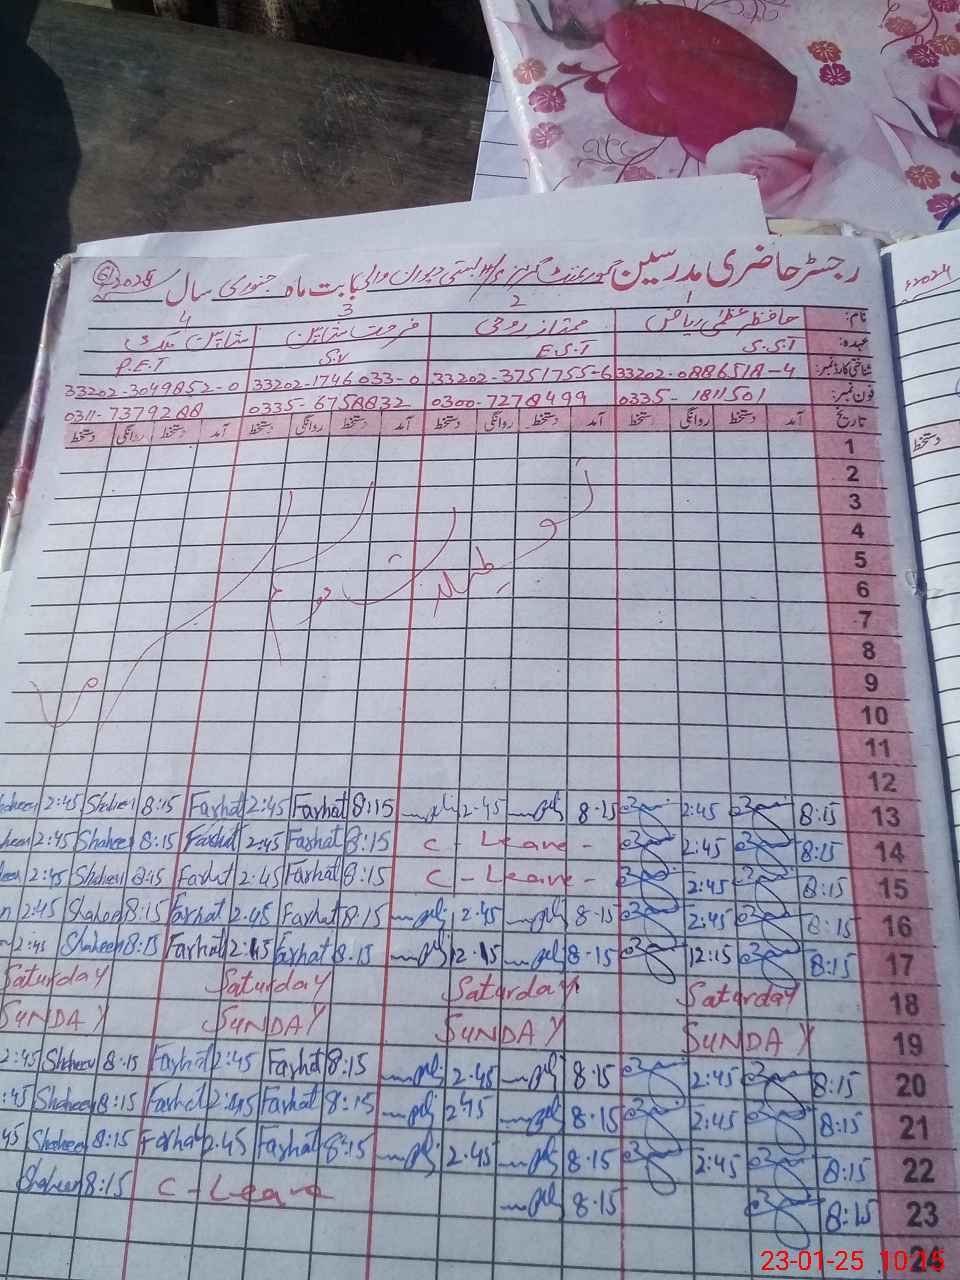 رجسٹر حاضری مدرسین گورنمنٹ گرلز بستی والی بابت ماہ جنوری سال 2025 6
1 2 3 4
نام: حافظہ عظمیٰ ریاض ممتاز روحی فرحت شاہین شاہین ملک
عہدہ: S.S.T E.S.T S.V P.E.T
شناختی کارڈ نمبر: 33202-0886518-4 33202-3751755-6 33202-1746033-0 33202-3049852-0
فون نمبر: 0335-1811501 0300-7278499 0335-6758832 0311-7379288
تاریخ آمد دستخط روانگی دستخط آمد دستخط روانگی دستخط آمد دستخط روانگی دستخط آمد دستخط روانگی دستخط
1
2
3
4
5
6
7
8
9
10
11
12
13 8:15 2:45 8:15 2:45 8:15 Farhat 2:45 Farhat 8:15 Shaheen 2:45 Shaheen
14 8:15 2:45 C-Leave- 8:15 Farhat 2:45 Farhat 8:15 Shaheen 2:45
15 8:15 2:45 C-Leave- 8:15 Farhat 2:45 Farhat 8:15 Shaheen 2:45
16 8:15 2:45 8:15 2:45 8:15 Farhat 2:45 Farhat 8:15 Shaheen 2:45
17 8:15 12:15 8:15 12:15 8:15 Farhat Farhat 8:15 Shaheen
18 Saturday Saturday Saturday Saturday
19 SUNDAY SUNDAY SUNDAY SUNDAY
20 8:15 2:45 8:15 2:45 8:15 Farhat 2:45 Farhat 8:15 Shaheen 2:45
21 8:15 2:45 8:15 2:45 8:15 Farhat 2:45 Farhat 8:15 Shaheen :45
22 8:15 2:45 8:15 2:45 8:15 Farhat 2:45 Farhat 8:15 Shaheen 45
23 8:15 8:15 C-Leave 8:15 Shaheen
24
2024
دستخط
abc
23-01-25 10:15